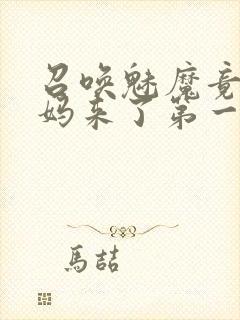 召唤魅魔竟
妈来了第一
馬喆